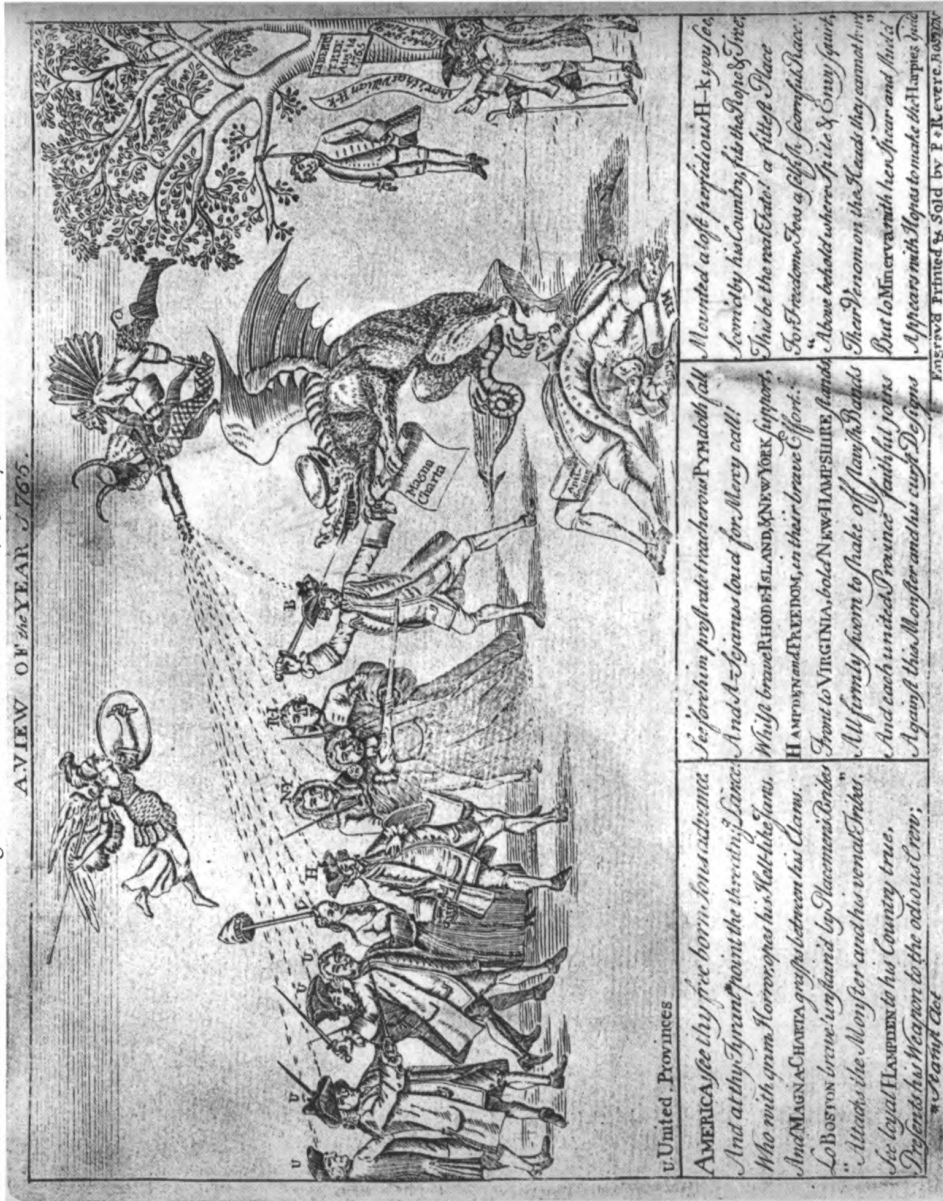 A VIEW OF the YEAR 1765.
LIBERTY
TREE
Aug.t 14
1765
Magna
Charta
Anti
B
R-I
NY
H
L
U
U
U
U
U United Provinces
AMERICA see thy free born sons advance
And at thy Tyrant point the threat'ning Lance
Who with grim Horror opes his Hell-like Jaws
And MAGNA CHARTA grasps between his Claws.
Lo BOSTON brave unstain'd by Placemens Bribes
"Attacks the Monster and his venal Tribes"
See loyal HAMPDEN to his Country true.
Presents his Weapon to the odious Crew;
* Stamp Act
See for him prostrate treacherous PYM doth fall
And A-Gyrus loud for Mercy call!
Whilst brave RHODE-ISLAND & NEW YORK support,
HAMPDEN and FREEDOM, in their brave Effort.
Front to VIRGINIA, bold NEW-HAMPSHIRE stands
All firmly sworn to shake off slavish Bands
And each united Province faithful joins
Against this Monster and his curst Designs
Mounted aloft perfidious H-k you see,
Scorn'd by his Country, fits the Rope & Tree;
This be the real Fate! a fittest Place
To Freedoms Foes a selfish scornful Race!
"Above behold where Spite & Envy squirt,
Their Venom on the Heads they cannot hurt"
But lo Minerva with her Spear and Shield
Appears with Hopes to make the Harpies yield
Engrav'd Printed & Sold by P. Revere, BOSTON